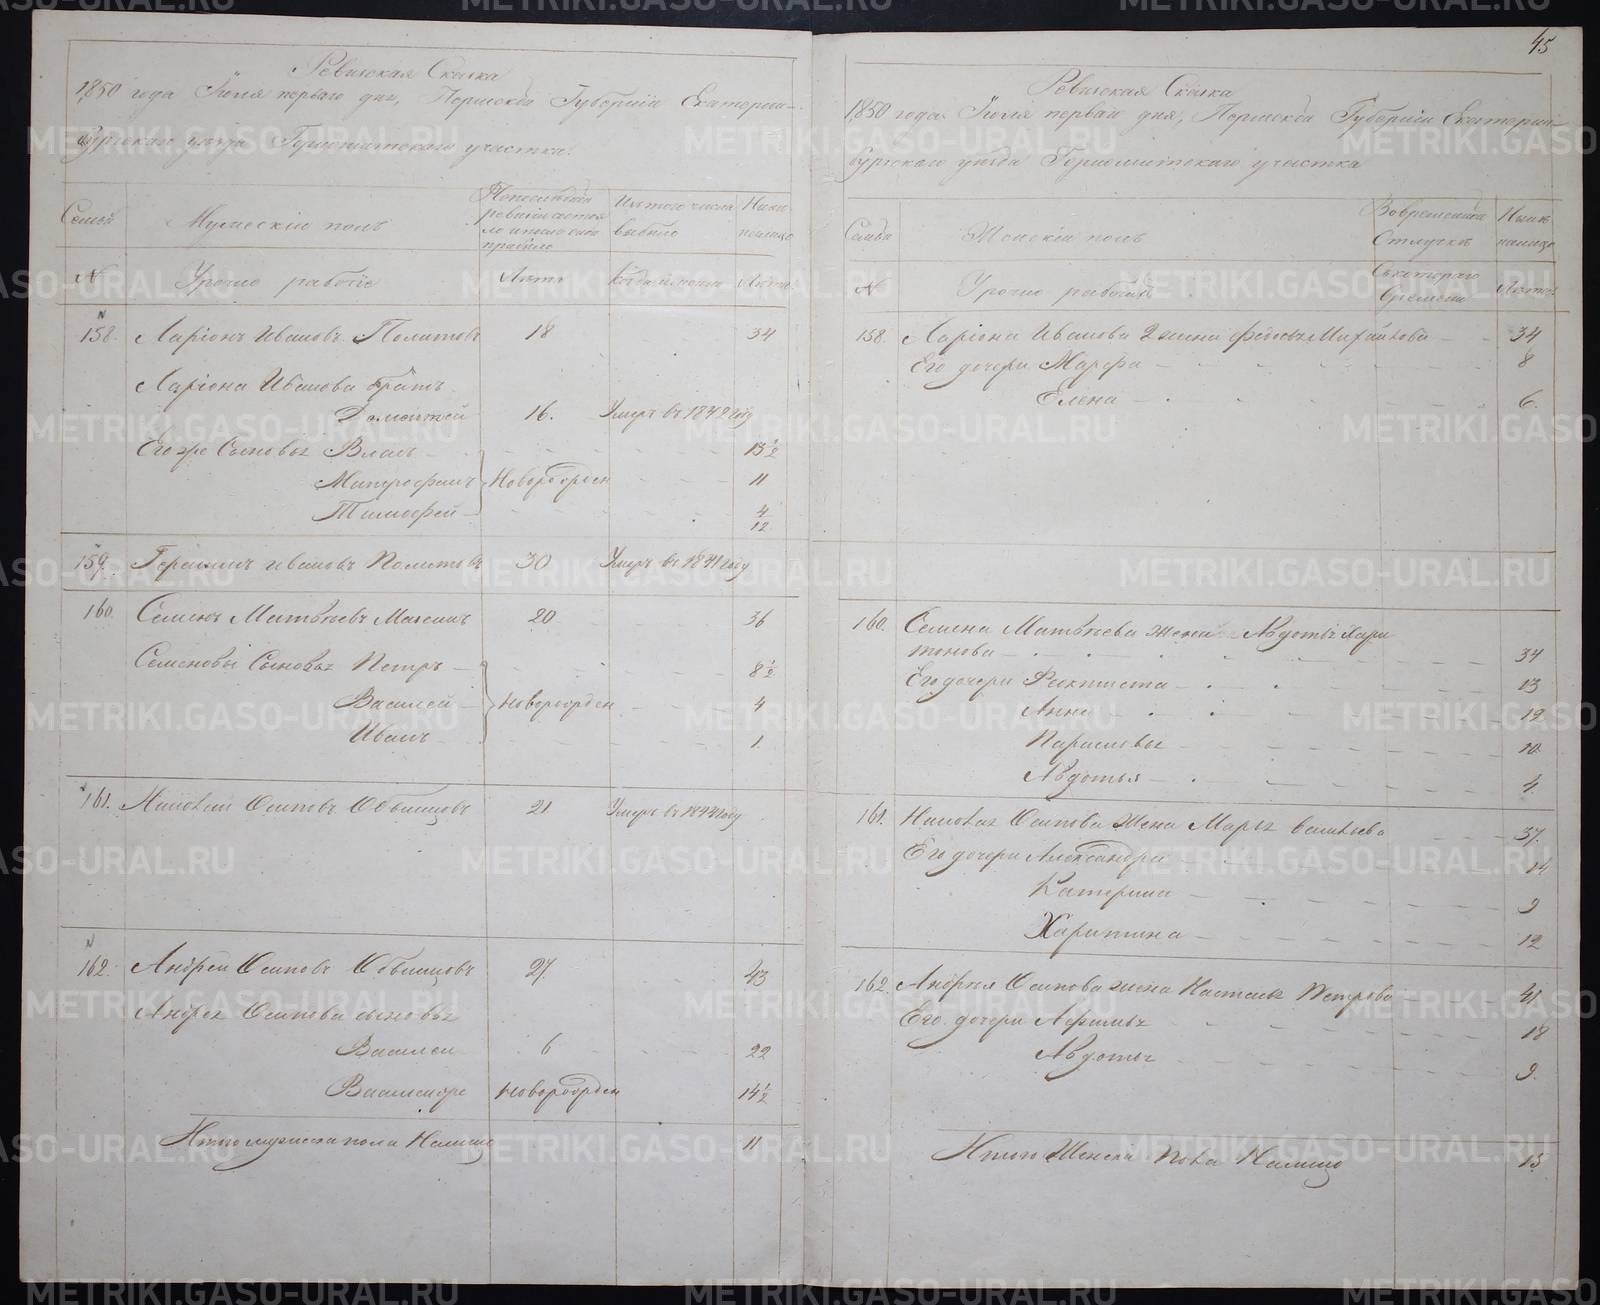 Ревизская Сказка
1850 года Іюля перваго дня, Пермской Губерніи Екатерин-
бургскаго уезда Горнощитскаго участка.
Семей
Мужескій полъ
По последней ревизіи состояло и после оной прибыло
Изъ того числа выбыло
Ныне на лицо
№
Урочно рабочіе
Лета
Когда именно
Лета
158. Ларіонъ Ивановъ Политовъ 18 34
Ларіона Иванова братъ
Дементей 16. Умеръ въ 1842 году
Его же Сыновья Власъ 13 1/2
Митрофанъ Новорожден 11
Тимофей 4/12
159. Германъ Ивановъ Политовъ 30 Умеръ въ 1841 году
160. Семенъ Матвеевъ 20 36
Семеновы Сыновья Петръ 8 1/2
Василей Новорожден 4
Иванъ 1.
161. Осиповъ 21 Умеръ въ 1844 году
162. Андрей Осиповъ 27. 43
Андрея Осипова сыновья
Василей 6 22
Новорожден 14 1/2
Итого мужеска пола Налицо 11
45
Ревизская Сказка
1850 года Іюля перваго дня, Пермской Губерніи Екатерин-
бургскаго уезда Горнощитскаго участка
Семьи
Женскій полъ
Во временной Отлучке
Ныне налицо
№
Урочно рабочихъ
Съ котораго Времени
Лета
158. Ларіона Иванова 2 жена Федосья Михайлова 34
Его дочери Марфа 8
Елена 6.
160. Семена Матвеева жена Авдотья Хари
тонова 34
Его дочери Фектиста 13
Анна 12
Парасковья 10
Авдотья 4.
161. Осипова Жена Марья 37.
Его дочери Александра 14
Катерина 9
Харитина 12
162. Андрея Осипова жена Настасья Петрова 41.
Его дочери Афимья 18
Авдотья 9.
Итого Женска Пола Налицо 15
METRIKI.GASO-URAL.RU